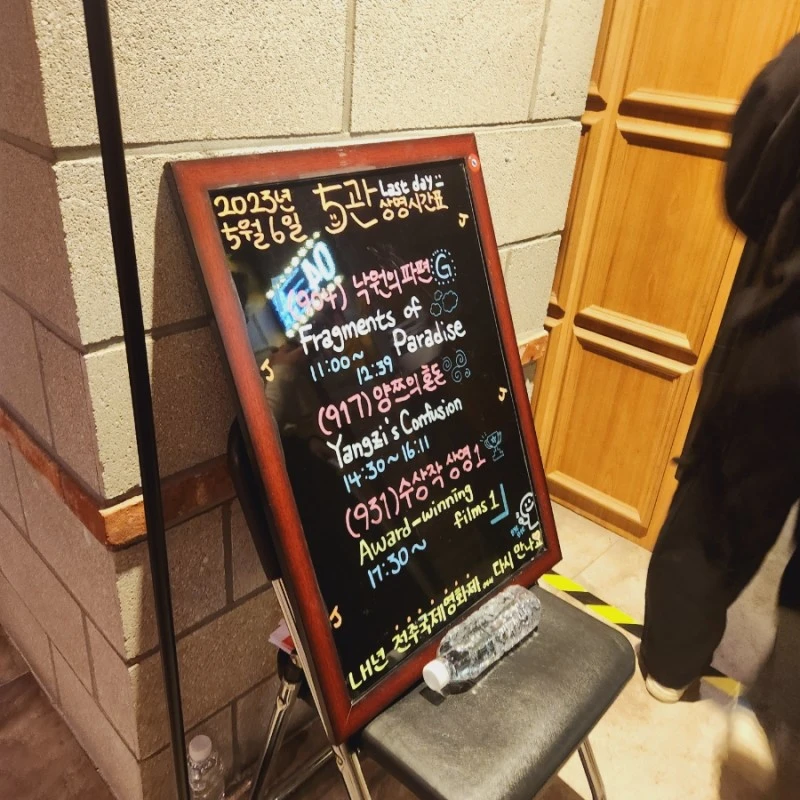 2023년
5월 6일
5관
Last day
상영시간표
(904) 낙원의 파편 G
Fragments of
Paradise
11:00~
12:39
(917) 양쯔의 혼돈
Yangzi's Confusion
14:30~16:11
(931) 수상작 상영 1
Award-winning
films 1
17:30~
내년 전주국제영화제에 다시 만나요